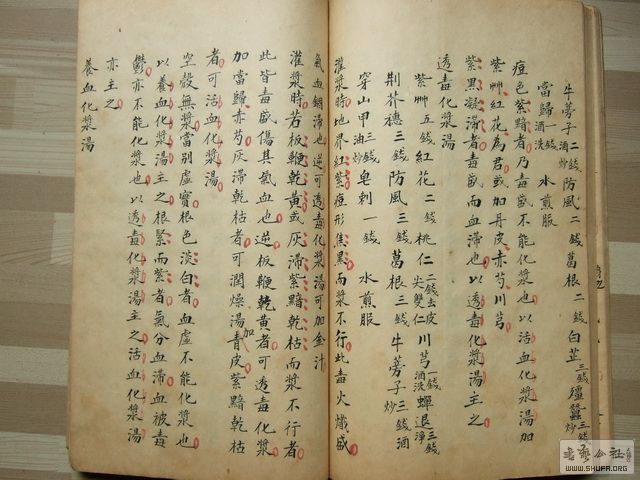 牛蒡子二錢酒炒防風二錢葛根二錢白芷三錢殭蠶三錢炒
當歸一錢酒洗 水煎服
痘色紫黯者乃毒盛不能化漿也以活血化漿湯加
紫艸紅花爲君或加丹皮赤芍川芎
紫黑凝滯者毒盛而血滯也以透毒化漿湯主之
透毒化漿湯
紫艸五錢紅花二錢桃仁二錢去皮尖雙仁川芎一錢酒洗蟬退三錢淨
荆芥穗三錢防風三錢葛根三錢牛蒡子三錢酒炒
穿山甲三錢油炒皂刺一錢 水煎服
灌漿時地界紅紫痘形焦黑而漿不行此毒火熾盛
氣血錮滯也逆可透毒化漿湯可加金汁
灌漿時若板鞕乾黄或灰滯紫黯乾枯而漿不行者
此皆毒盛傷其氣血也逆板鞕乾黄者可透毒化漿
加當歸赤芍灰滯乾枯者可潤燥湯加青皮紫黯乾枯
者可活血化漿湯
空殼無漿當别虚實根色淡白者血虚不能化漿也
以養血化漿湯主之根緊而紫者氣分血滯血被毒
鬱亦不能化漿也以透毒化漿湯主之活血化漿湯
亦主之
養血化漿湯
书法公社
WWW.SHUFA.ORG